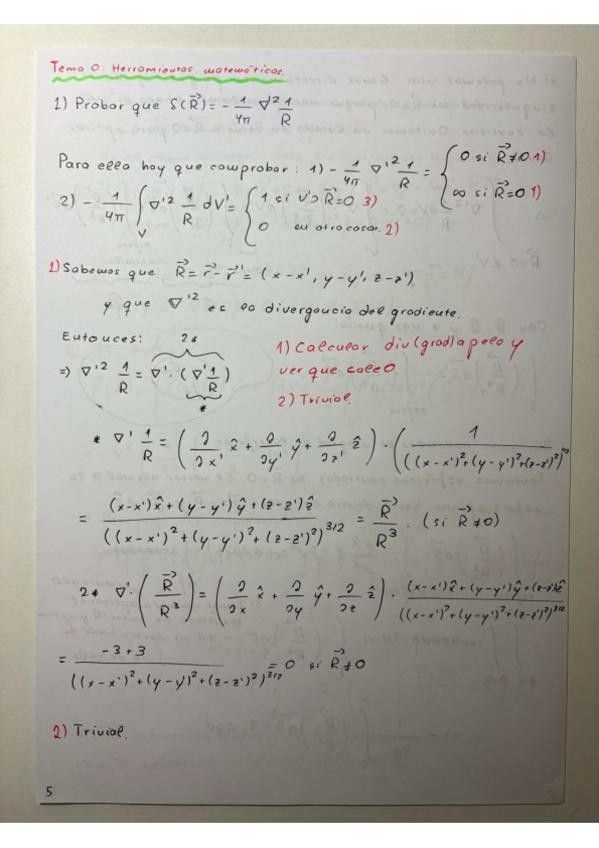 Tema 0. Herramientas matemáticas.
1) Probar que S(R⃗) = - 1/4π ∇'² 1/R
Para ello hay que comprobar: 1) - 1/4π ∇'² 1/R = { 0 si R⃗≠0 1)
∞ si R⃗=0 1)
2) - 1/4π ∫_V ∇'² 1/R dV' = { 1 si V'⊃R⃗=0 3)
0 en otro caso. 2)
1) Sabemos que R⃗ = r⃗ - r⃗' = (x-x', y-y', z-z')
y que ∇'² es la divergencia del gradiente.
Entonces: 2*
⇒ ∇'² 1/R = ∇'·(∇' 1/R)
*
1) Calcular div(grad) a pelo y
ver que sale 0.
2) Trivial.
* ∇' 1/R = (∂/∂x' x̂ + ∂/∂y' ŷ + ∂/∂z' ẑ) · (1/((x-x')²+(y-y')²+(z-z')²)^1/2)
= (x-x')x̂+(y-y')ŷ+(z-z')ẑ / ((x-x')²+(y-y')²+(z-z')²)^3/2 = R⃗/R³ . (si R⃗≠0)
2* ∇'·(R⃗/R³) = (∂/∂x x̂ + ∂/∂y ŷ + ∂/∂z ẑ) · (x-x')x̂+(y-y')ŷ+(z-z')ẑ / ((x-x')²+(y-y')²+(z-z')²)^3/2
= -3+3 / ((x-x')²+(y-y')²+(z-z')²)^3/2 = 0 si R⃗≠0
2) Trivial.
5